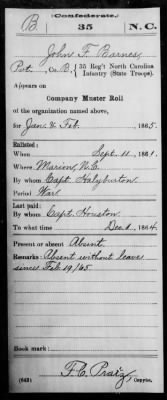 Confederate.
B. 35 N.C.
John F. Barnes
Pvt, Co. B, 35 Reg't North Carolina
Infantry (State Troops).
Appears on
Company Muster Roll
of the organization named above,
for Jan & Feb, 1865.
Enlisted:
When Sept. 11, 1861.
Where Marion, N.C.
By whom Capt Halyburton
Period War
Last paid:
By whom Capt. Houston
To what time Dec. 1, 1864.
Present or absent Absent
Remarks: Absent without leave
since Feb 19/65
Book mark:
(642) F. C. Copyist.